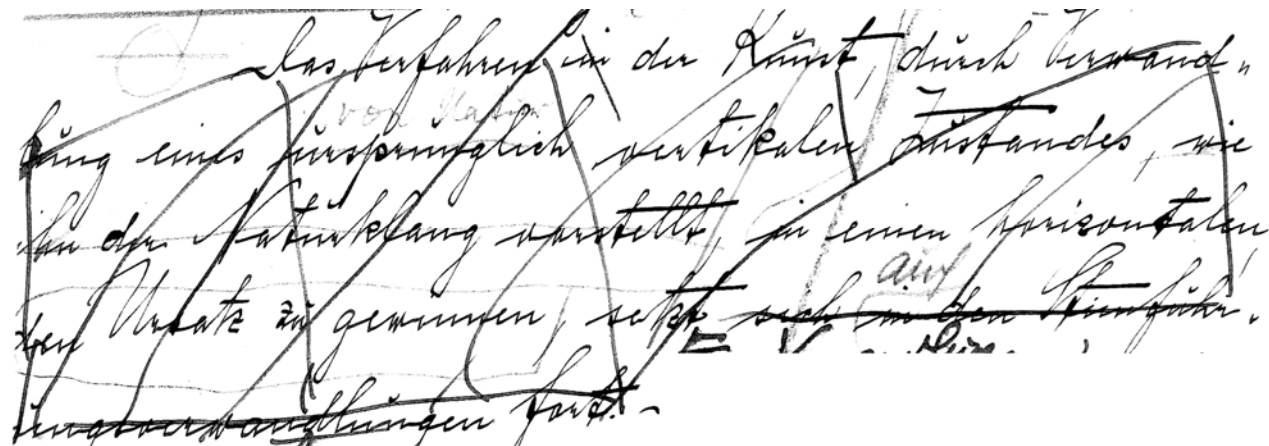 Das Verfahren in der Kunst, durch Verwand-
von Natur
lung eines ursprünglich vertikalen Zustandes, wie
ihn der Naturklang vorstellt, in einen horizontalen
auf
den Ursatz zu gewinnen, setzt sich in den Stimmführ-
ungsverwandlungen fort. -